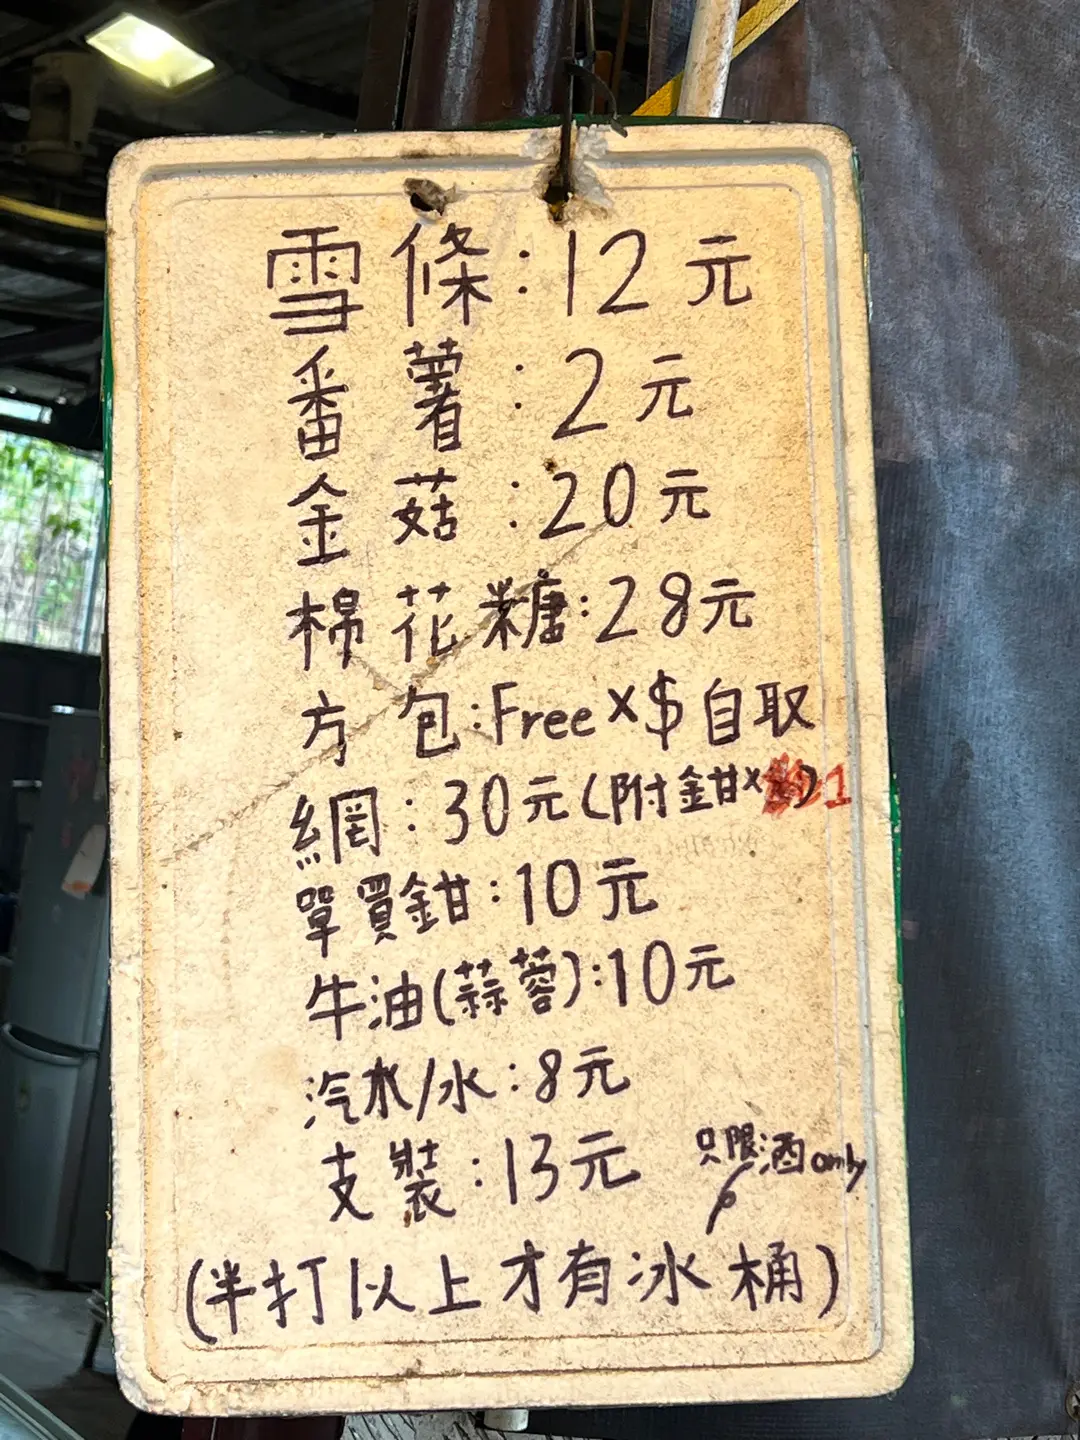 雪條:12元
番薯:2元
金菇:20元
棉花糖:28元
方包:Free x $ 自取
網:30元(附鉗x)1
單買鉗:10元
牛油(蒜蓉):10元
汽水/水:8元
支裝:13元 只限酒only
(半打以上才有冰桶)